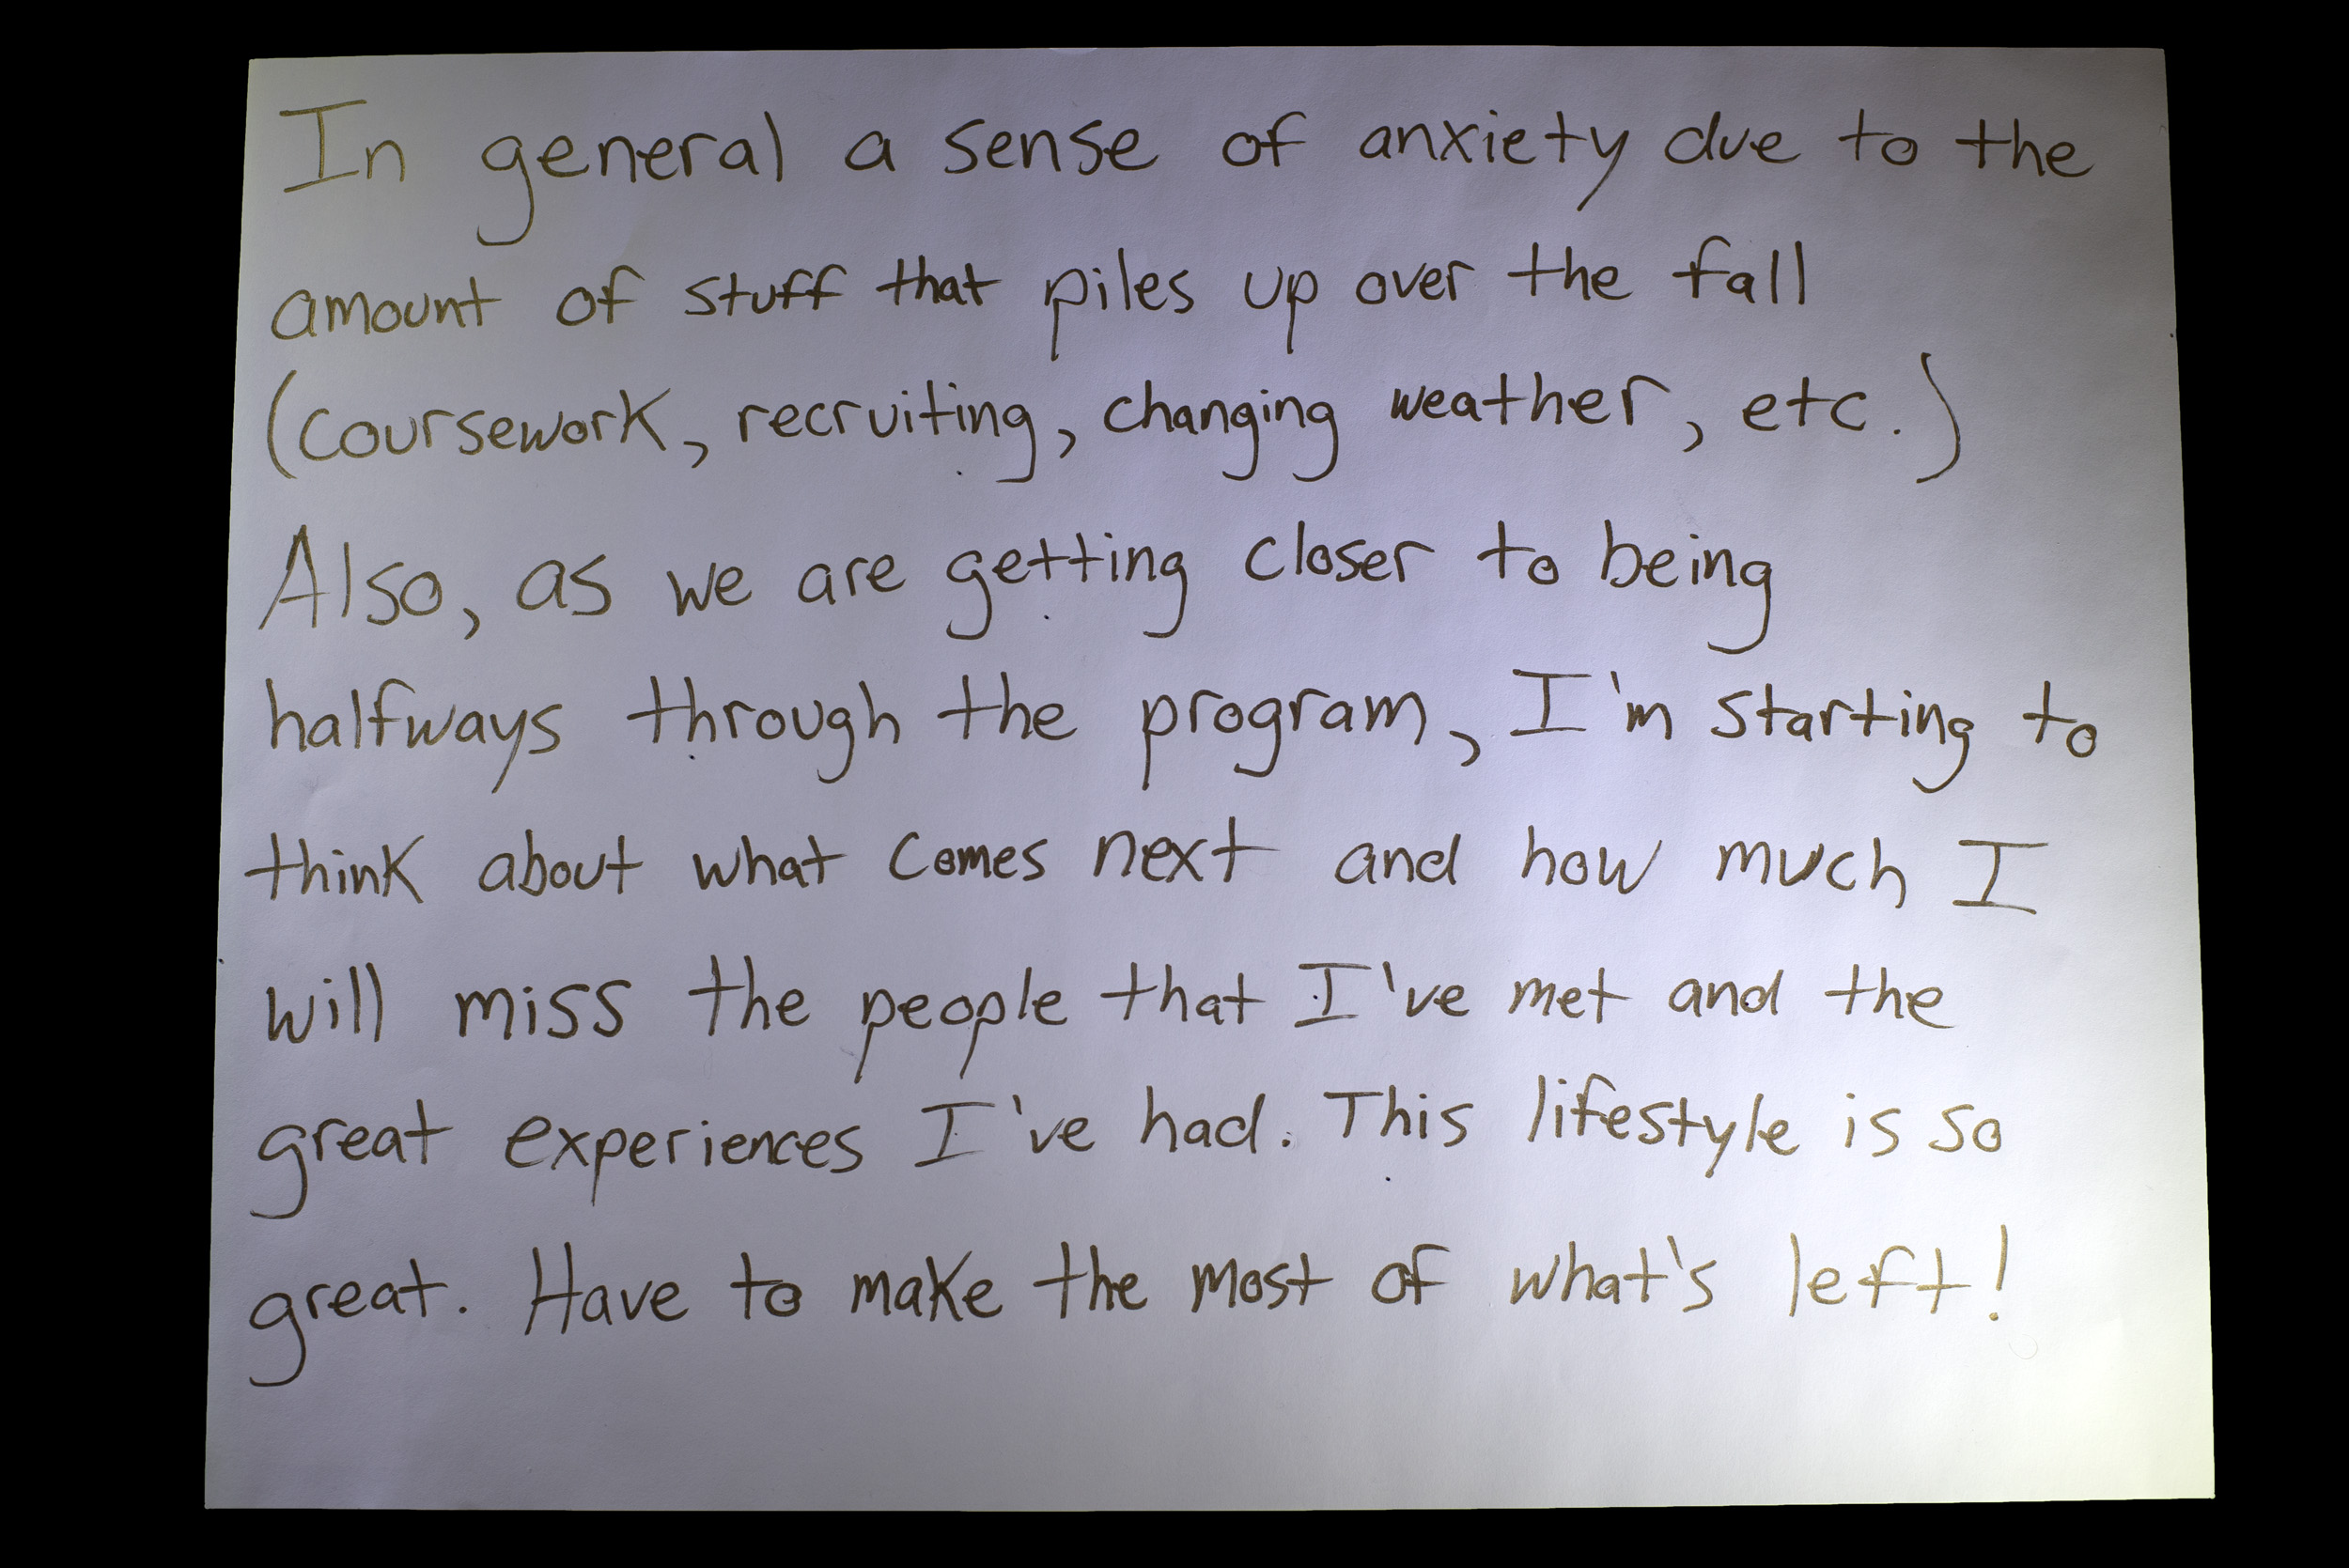 In general a sense of anxiety due to the
amount of stuff that piles up over the fall
(coursework, recruiting, changing weather, etc.)
Also, as we are getting closer to being
halfways through the program, I'm starting to
think about what comes next and how much I
will miss the people that I've met and the
great experiences I've had. This lifestyle is so
great. Have to make the most of what's left!